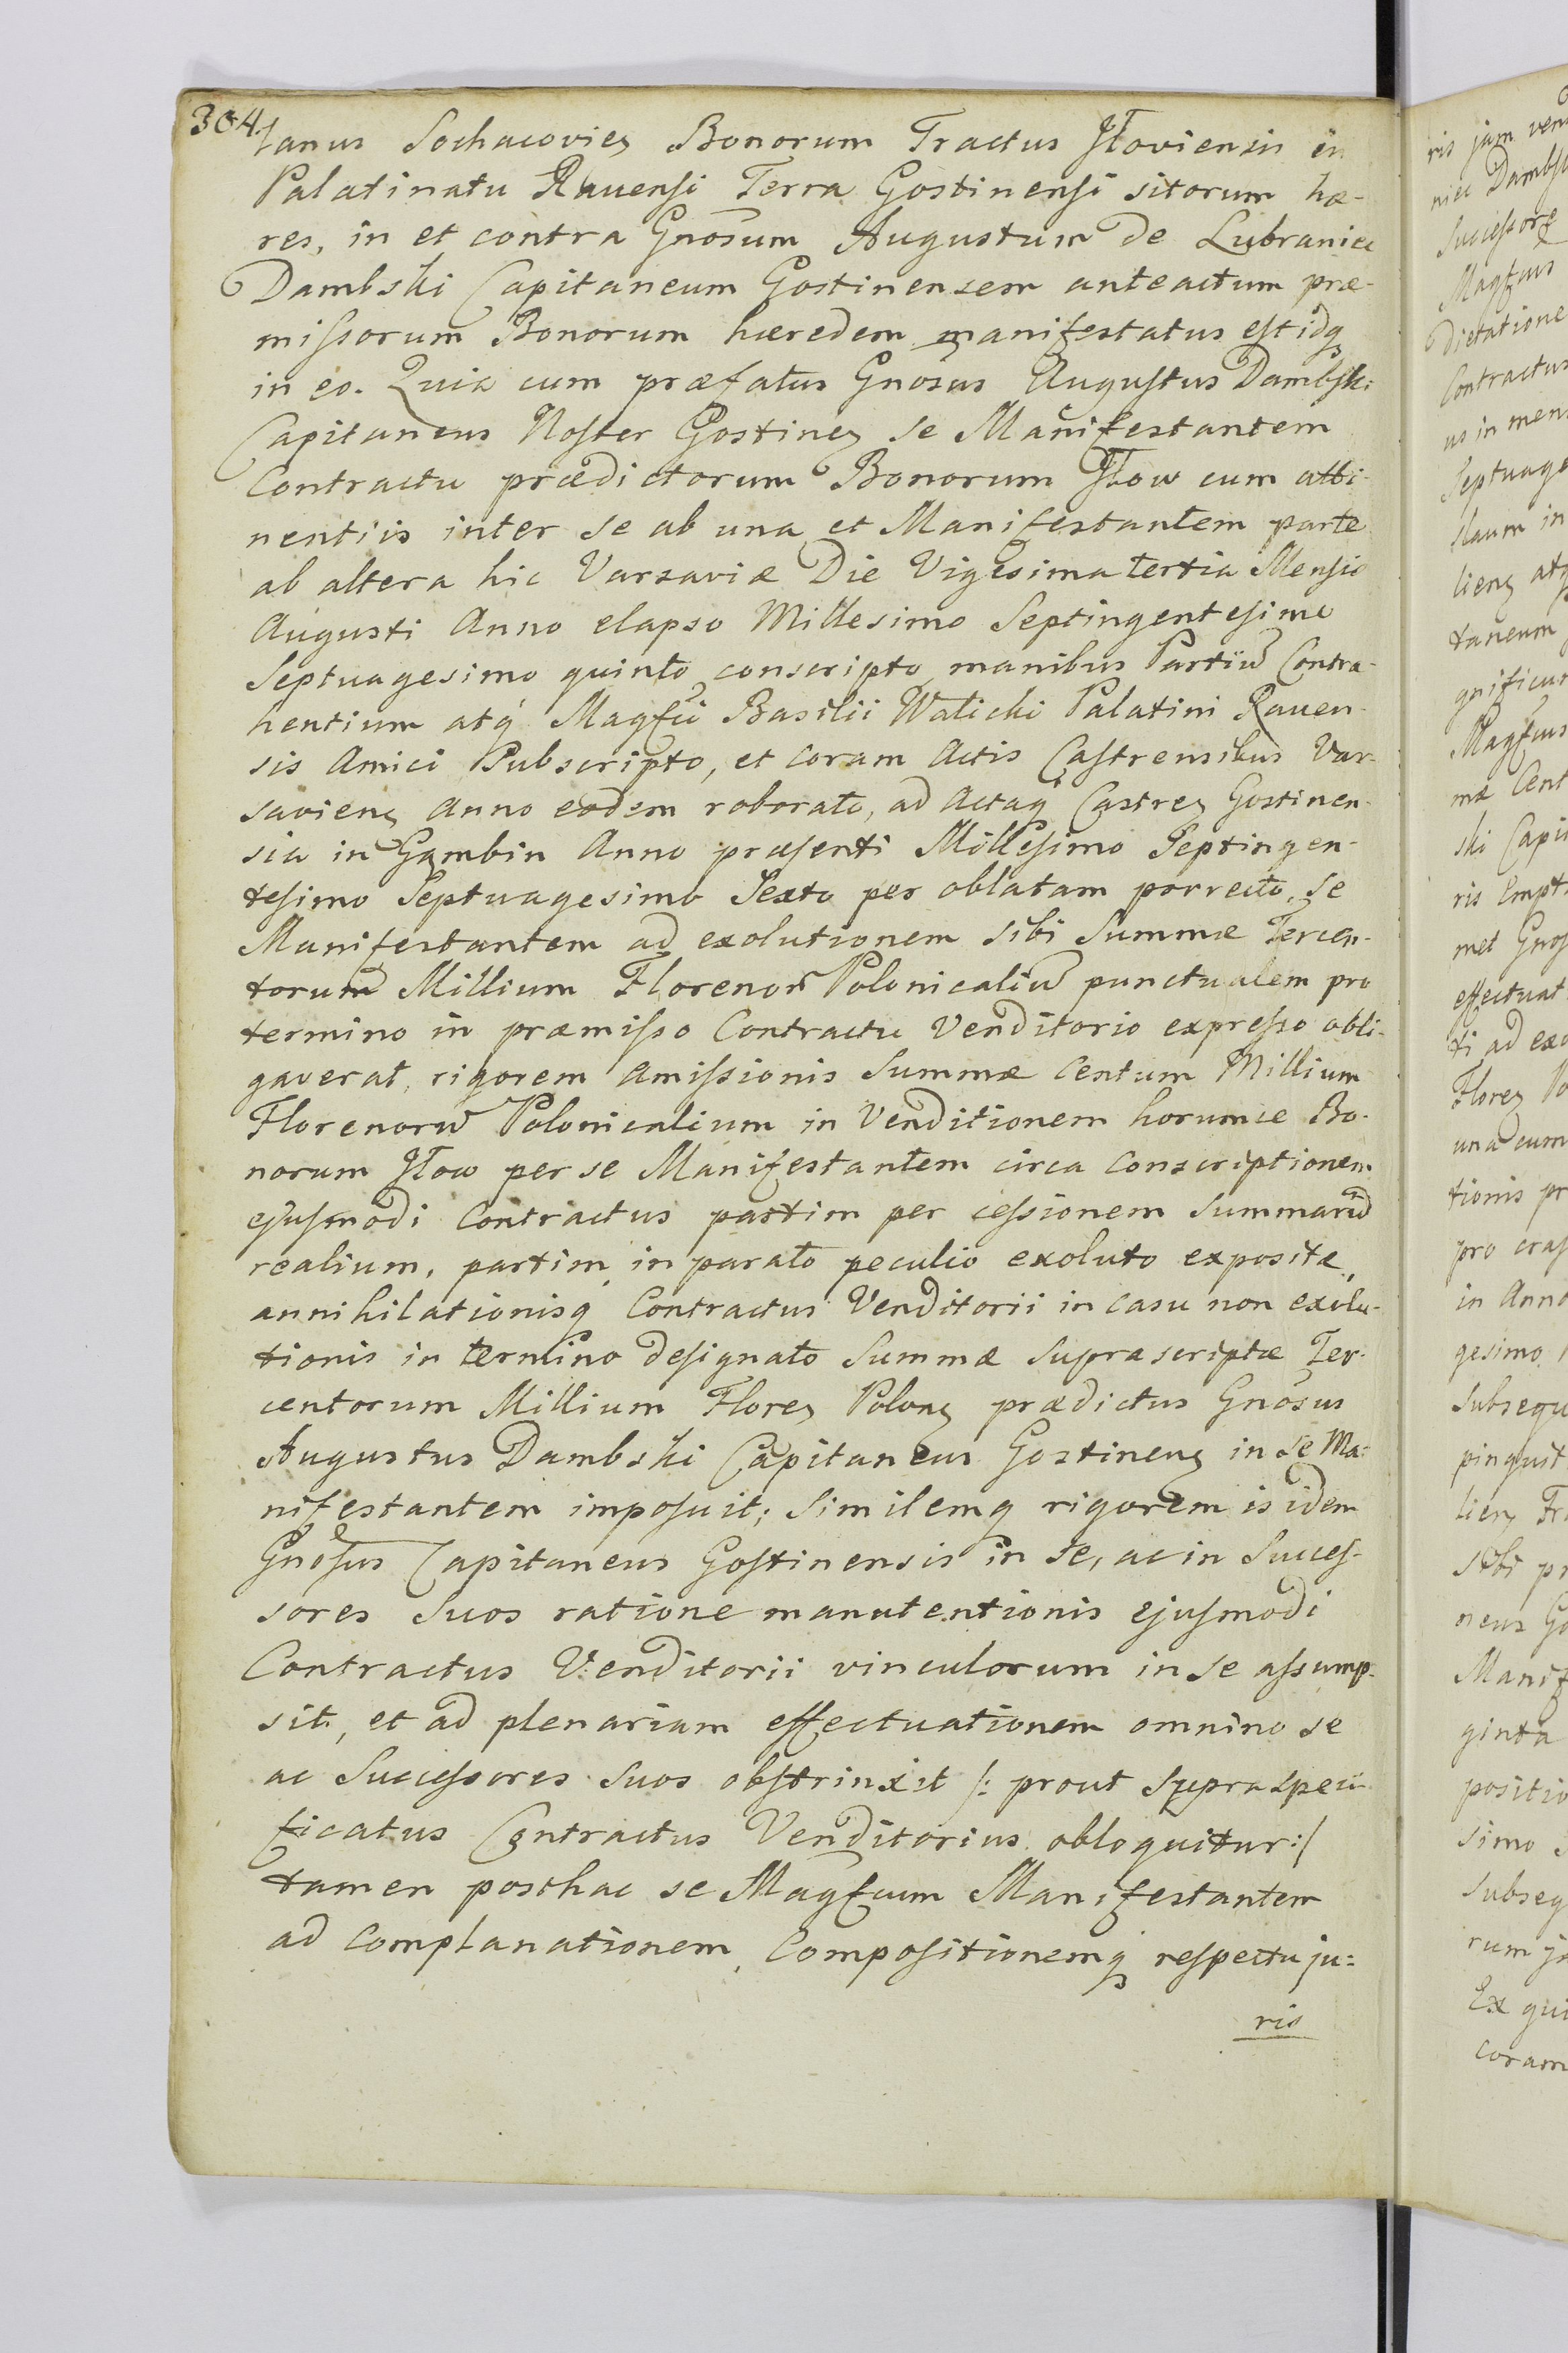 304.
tanus Sochacovien Bonorum Tractus Iłoviensis in
Palatinatu Ravensi Terra Gostinensi sitorum hæ-
res, in et contra Gnosum Augustum de Lubraniec
Dambski Capitaneum Gostinensem anteactum præ-
missorum Bonorum hæredem manifestatus est idq
in eo. Quia cum præfatus Gnosus Augustus Dambski
Capitaneus Noster Gostinen se Manifestantem
Contractu prædictorum Bonorum Iłow cum atti-
nentiis inter se ab una et Manifestantem parte
ab altera hic Varsaviæ Die Vigesima tertia Mensis
Augusti Anno elapso Millesimo Septingentesimo
Septuagesimo quinto conscripto manibus Partiū Contra-
hentium atq Magfci Basilii Walicki Palatini Raven-
sis Amici Subscripto, et coram Actis Castrensibus Var-
savien Anno eodem roborato, ad Actaq Castren Gostinen-
sia in Gambin Anno præsenti Millesimo Septingen-
tesimo Septuagesimo Sexto per oblatam porrecto, se
Manifestantem ad exolutionem sibi Summæ Tercen-
torum Millium Florenorū Polonicaliū punctualem pro
termino in præmisso Contractu Venditorio expresso obli-
gaverat, rigorem amissionis Summæ Centum Millium
Florenorū Polonicalium in Venditionem horumce Bo-
norum Iłow per se Manifestantem circa Conscriptionem
ejusmodi Contractus partim per cessionem Summarū
realium, partim in parato peculio exoluto expositæ,
annihilationisq Contractus Venditorii in casu non exolu-
tionis in termino designato Summæ supra scriptæ Ter-
centorum Millium Floren Polon prædictus Gnosus
Augustus Dambski Capitaneus Gostinen in se Ma=
nifestantem imposuit; Similemq rigorem is idem
Gnosus Capitaneus Gostinensis in se, ac in Succes-
sores suos ratione manutentionis ejusmodi
Contractus Venditorii vinculorum in se assump-
sit, et ad plenariam effectuationem omnino se
ac Successores suos obstrinxit /: prout supra speci-
ficatus Contractus Venditorius obloquitur :/
tamen posthac se Magfcum Manifestantem
ad complanationem, Compositionemq respectu ju=
ris